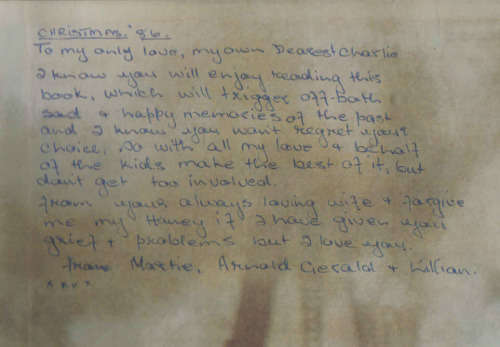 CHRISTMAS. '86.
To my only love, my own Dearest Charlie
I know you will enjoy reading this
book, which will trigger off both
sad & happy memories of the past
and I know you wont regret your
choice, So with all my love & behalf
of the kids make the best of it, but
don't get too involved.
from yours always loving wife & forgive
me my Honey if I have given you
grief & problems but I love you.
from Martie, Arnold Gerald & Lillian.
x x x x